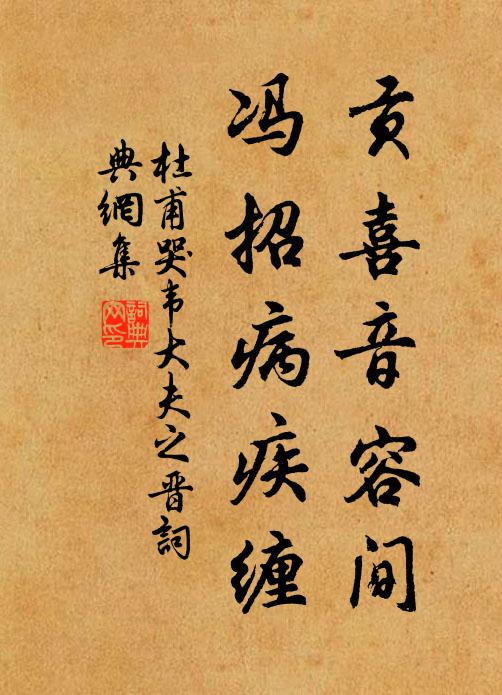 贡喜音容间
冯招病疾缠
杜甫哭韦大夫之晋詞
典網集
詞典网印